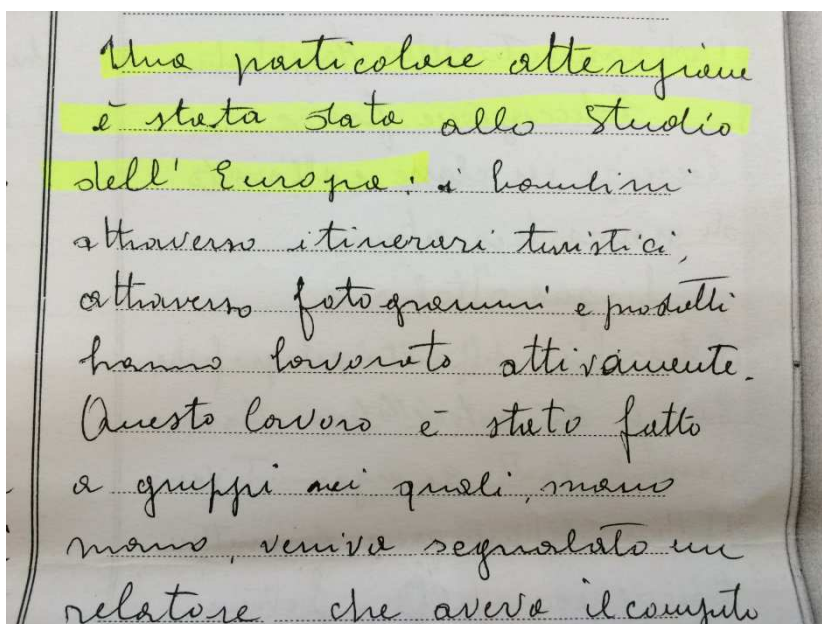 Una particolare attenzione
è stata data allo studio
dell'Europa: i bambini
attraverso itinerari turistici,
attraverso fotogrammi e prodotti
hanno lavorato attivamente.
Questo lavoro è stato fatto
a gruppi nei quali, mano
mano, veniva segnalato un
relatore che aveva il compito